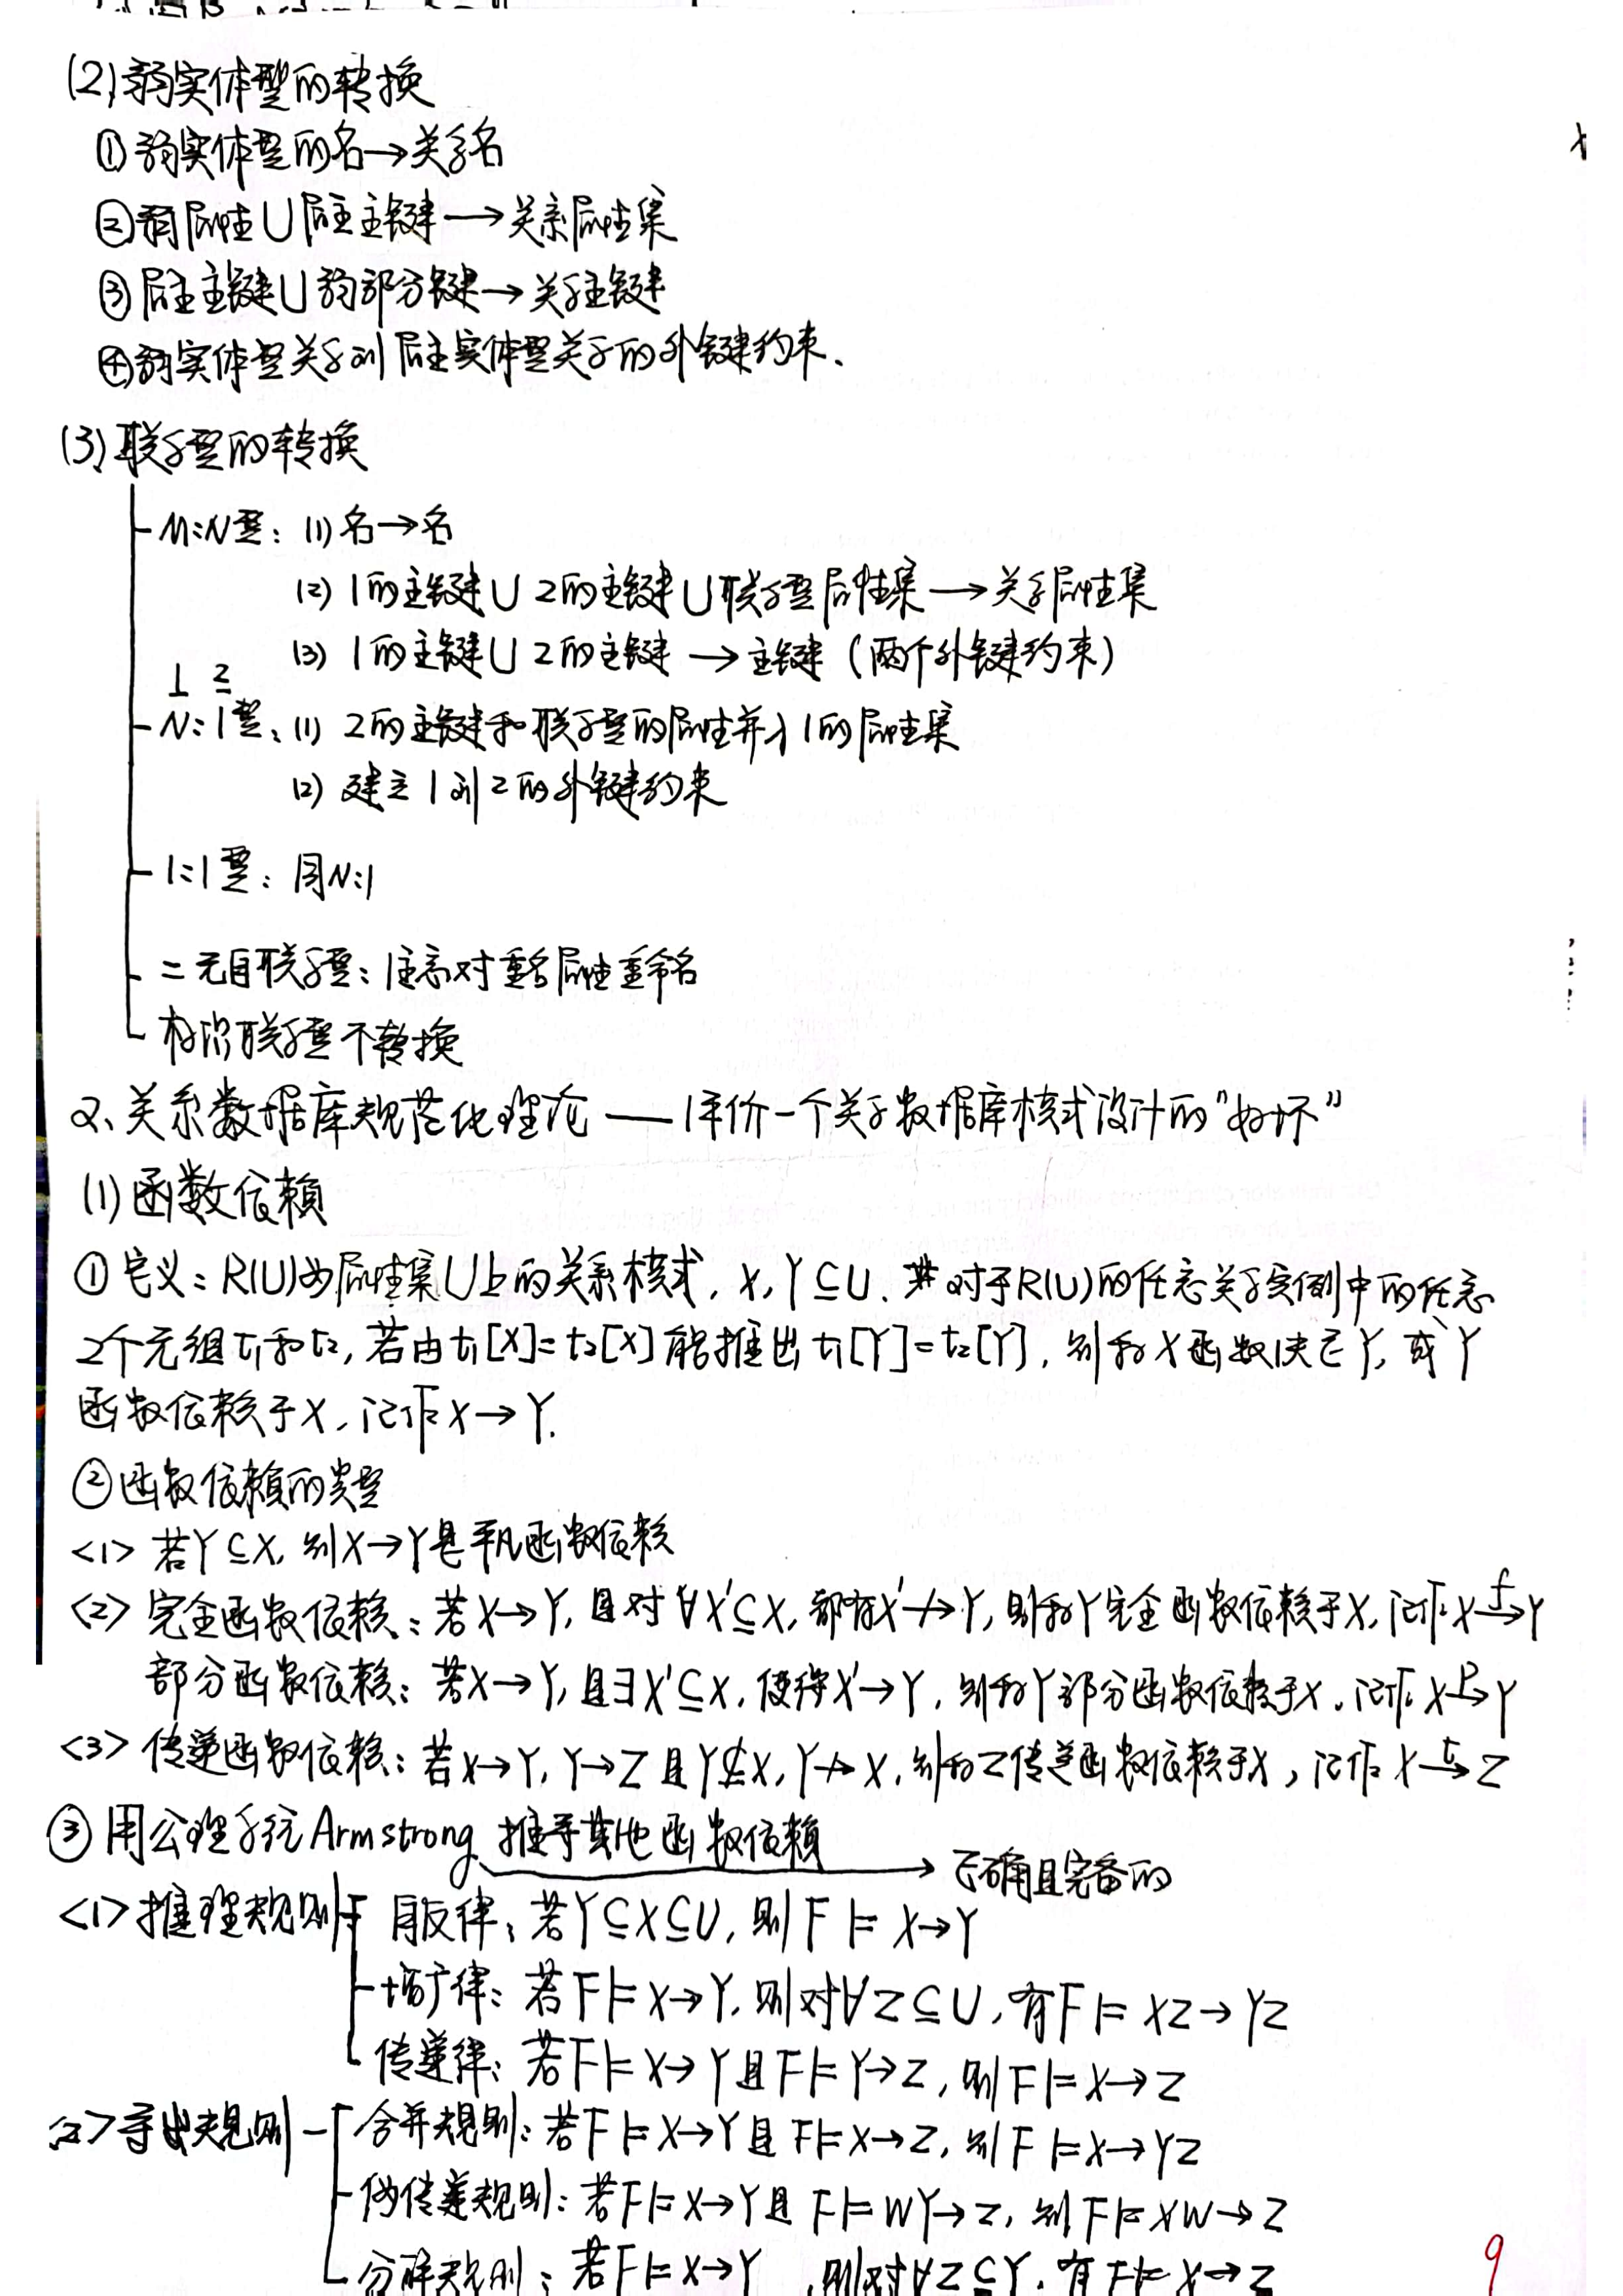 (2) 弱实体型的转换
① 弱实体型的名→关系名
② 弱属性∪属主主键→关系属性集
③ 属主主键∪弱部分键→关系主键
④ 弱实体型关系到属主实体型关系的外键约束.
(3) 联系型的转换
M:N型: (1) 名→名
(2) 1的主键∪2的主键∪联系型属性集→关系属性集
(3) 1的主键∪2的主键→主键 (两个外键约束)
1 2
N:1型: (1) 2的主键和联系型的属性并入1的属性集
(2) 建立1到2的外键约束
1:1型: 同N:1
二元自联系型: 注意对重名属性重命名
标识联系型不转换
2、关系数据库规范化理论——评价一个关系数据库模式设计的"好坏"
(1) 函数依赖
① 定义: R(U)为属性集U上的关系模式, X, Y⊆U. 对于R(U)的任意关系实例中的任意
2个元组t1和t2, 若由t1[X]=t2[X]能推出t1[Y]=t2[Y], 则称X函数决定Y, 或Y
函数依赖于X, 记作X→Y.
② 函数依赖的类型
<1> 若Y⊆X, 则X→Y是平凡函数依赖
<2> 完全函数依赖: 若X→Y, 且对∀X'⊆X, 都有X'↛Y, 则称Y完全函数依赖于X, 记作X-f→Y
部分函数依赖: 若X→Y, 且∃X'⊆X, 使得X'→Y, 则称Y部分函数依赖于X, 记作X-P→Y
<3> 传递函数依赖: 若X→Y, Y→Z且Y⊈X, Y↛X, 则称Z传递函数依赖于X, 记作X-t→Z
③ 用公理系统Armstrong推导其他函数依赖 → 正确且完备的
<1> 推理规则 自反律: 若Y⊆X⊆U, 则F⊨X→Y
增广律: 若F⊨X→Y, 则对∀Z⊆U, 有F⊨XZ→YZ
传递律: 若F⊨X→Y且F⊨Y→Z, 则F⊨X→Z
<2> 导出规则 合并规则: 若F⊨X→Y且F⊨X→Z, 则F⊨X→YZ
伪传递规则: 若F⊨X→Y且F⊨WY→Z, 则F⊨XW→Z
分解规则: 若F⊨X→Y, 则对∀Z⊆Y, 有F⊨X→Z
9